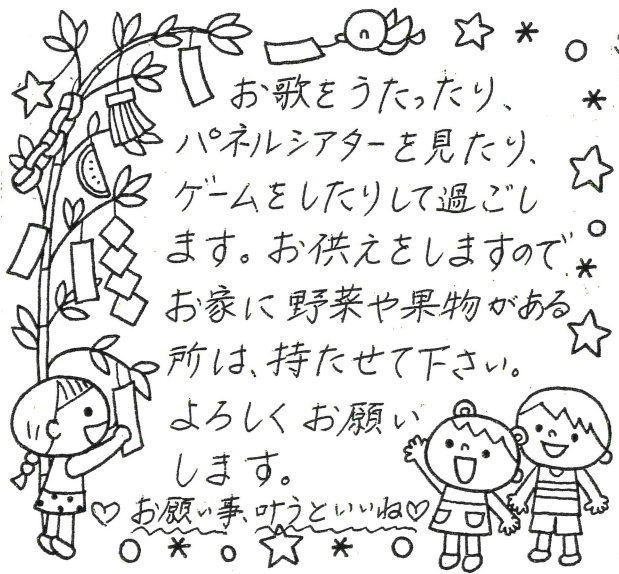 お歌をうたったり、
パネルシアターを見たり、
ゲームをしたりして過ごし
ます。お供えをしますので
お家に野菜や果物がある
所は、持たせて下さい。
よろしくお願い
します。
♡お願い事、叶うといいね♡